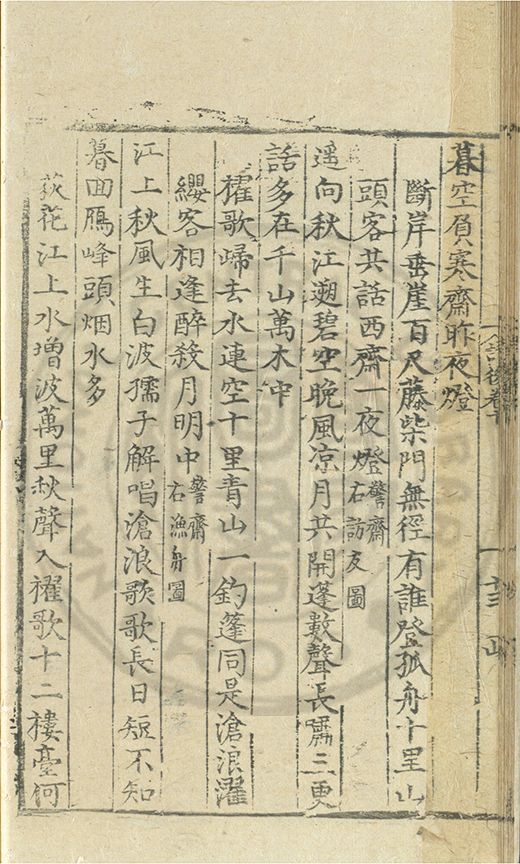 暮空負寒齋昨夜燈
斷岸垂崖百尺藤柴門無徑有誰登孤舟十里山
頭客共話西齋一夜燈警齋右訪友圖
遥向秋江遡碧空晚風凉月共開蓬數聲長嘯三更
話多在千山萬木中
櫂歌歸去水連空十里青山一釣蓬同是滄浪濯
纓客相逢醉殺月明中警齋右漁舟圖
江上秋風生白波孺子解唱滄浪歌歌長日短不知
暮回鴈峰頭烟水多
荻花江上水增波萬里秋聲入櫂歌十二樓臺何